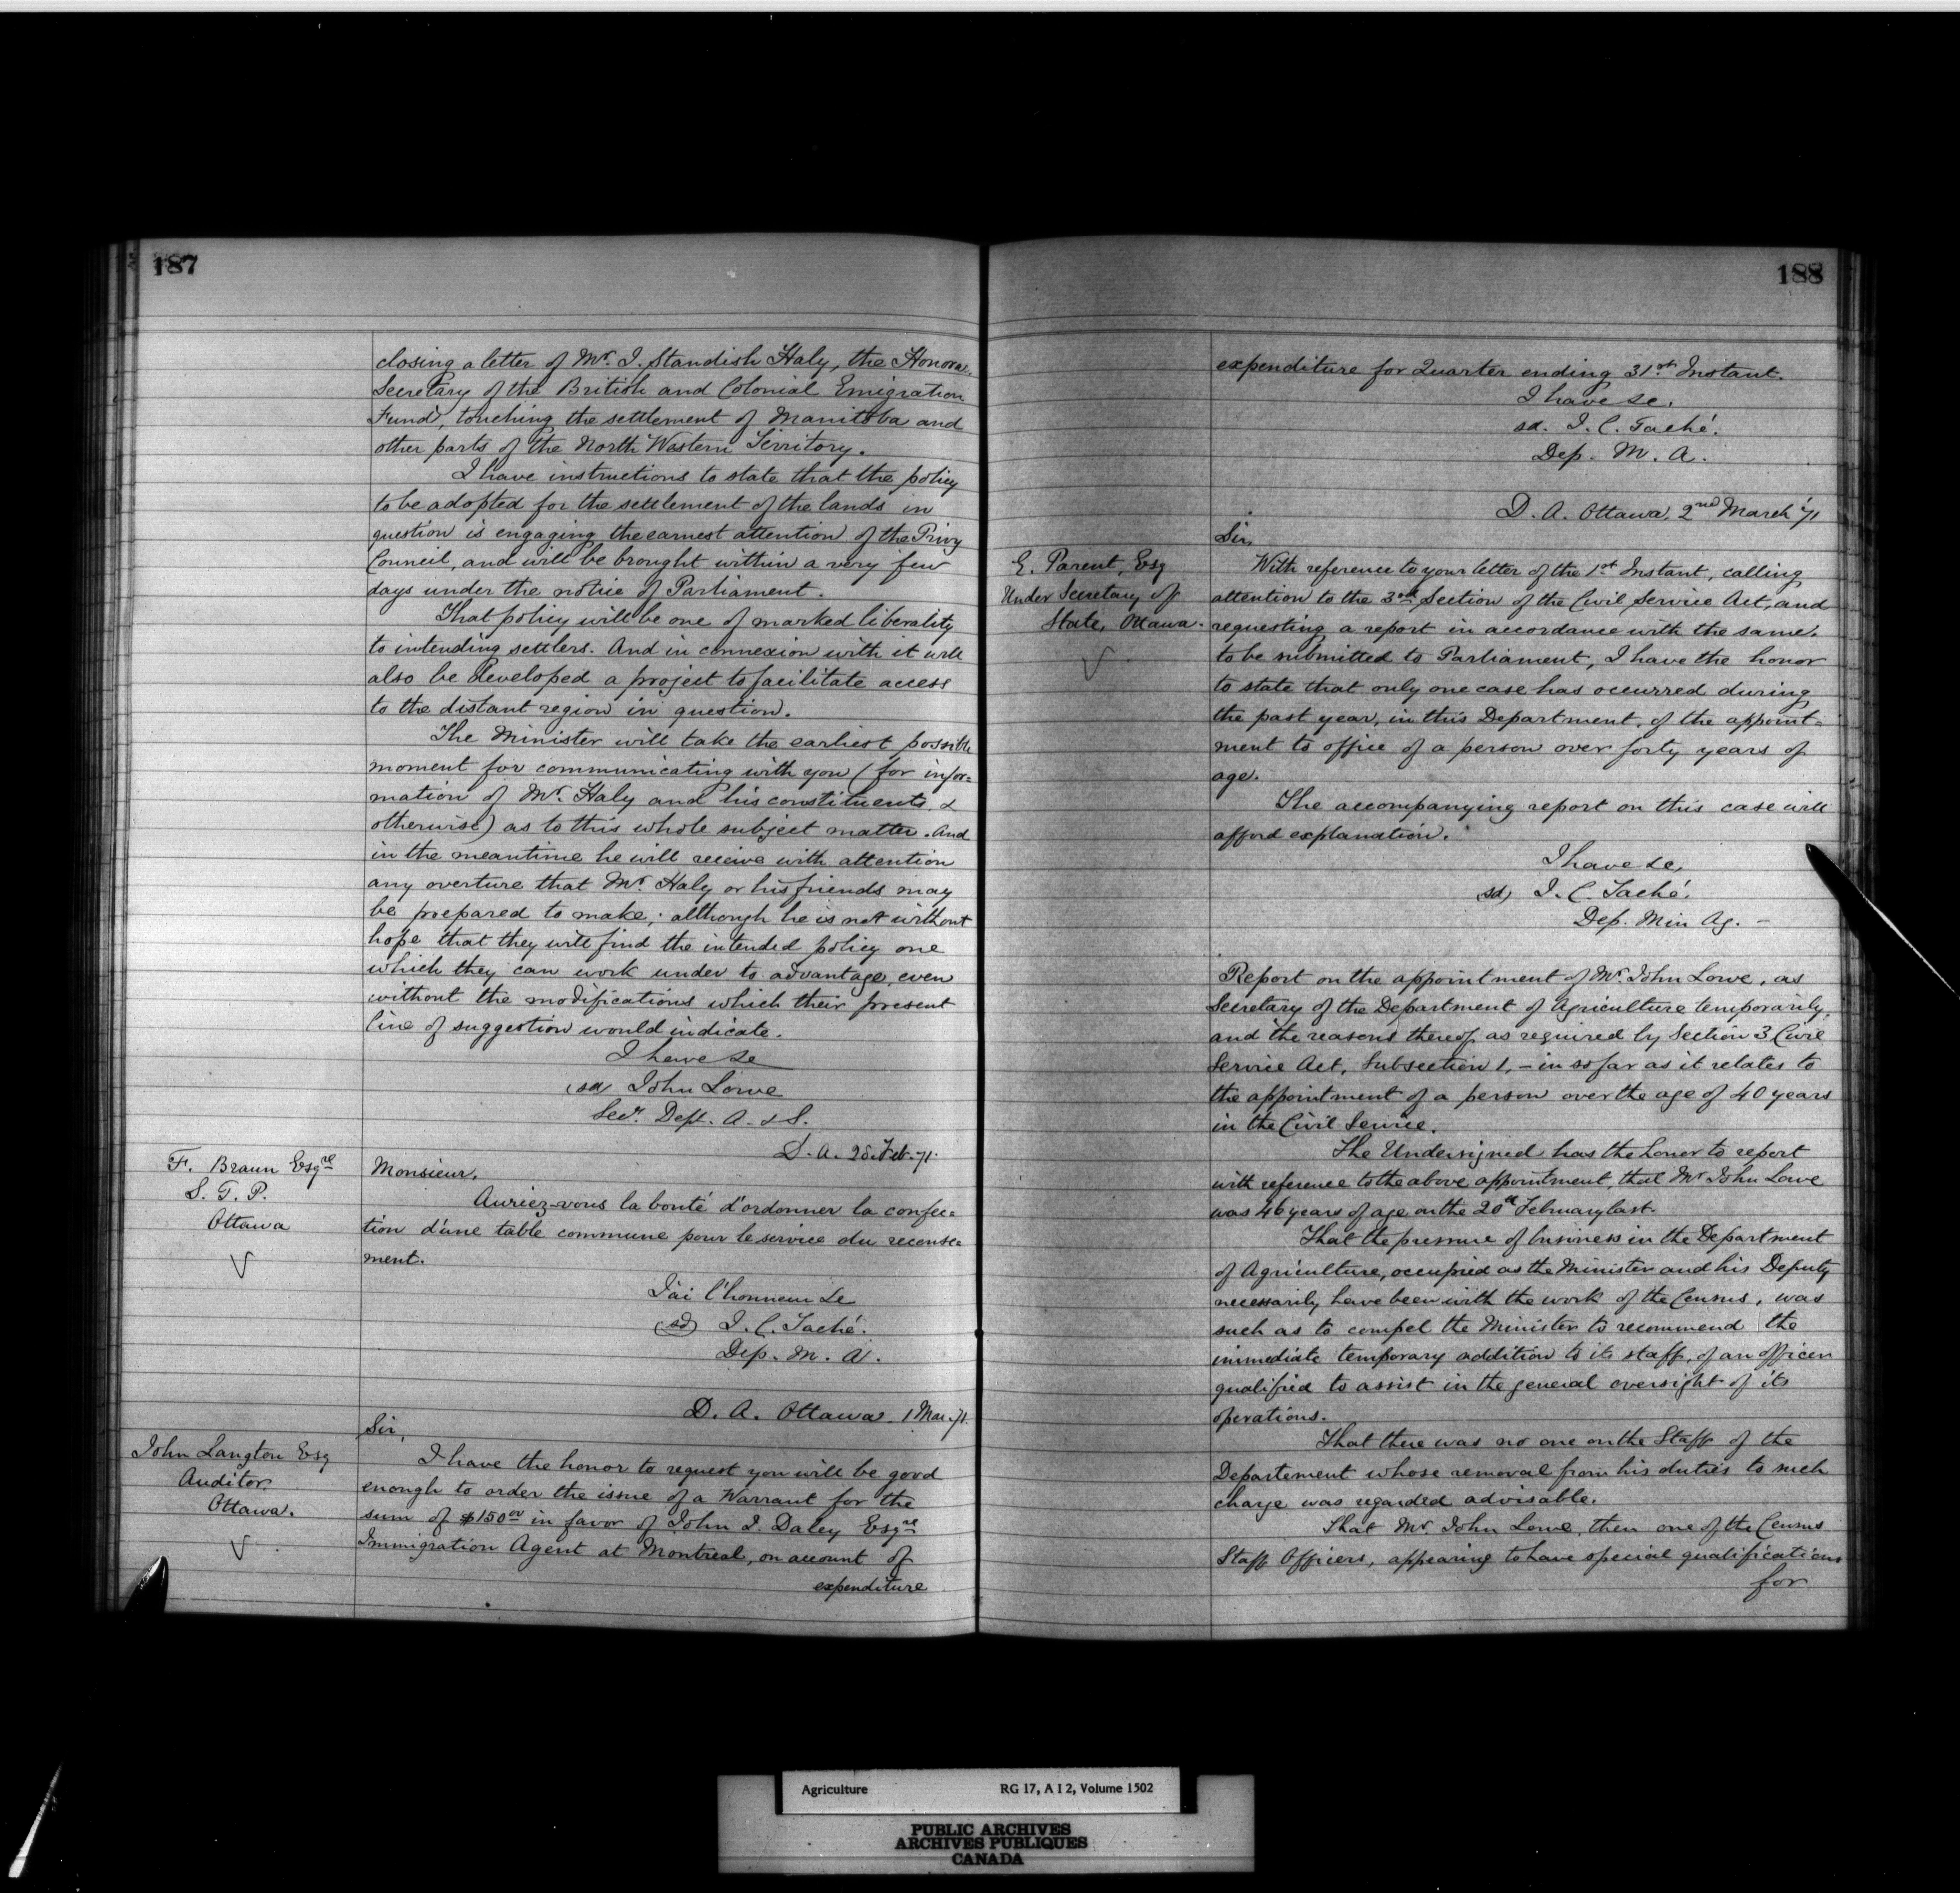 187
closing a letter of Mr. I. Standish Haly, the Honora.
Secretary of the British and Colonial Emigration
Fund, touching the settlement of Manitoba and
other parts of the North Western Territory.
I have instructions to state that the policy
to be adopted for the settlement of the lands in
question is engaging the earnest attention of the Privy
Council, and will be brought within a very few
days under the notice of Parliament.
That policy will be one of marked liberality
to intending settlers. And in connexion with it will
also be developed a project to facilitate access
to the distant region in question.
The Minister will take the earliest possible
moment for communicating with you (for infor=
mation of Mr. Haly and his constituents &
otherwise) as to this whole subject matter. And
in the meantime he will receive with attention
any overture that Mr. Haly or his friends may
be prepared to make; although he is not without
hope that they will find the intended policy one
which they can work under to advantage, even
without the modifications which their present
line of suggestion would indicate.
I have &c
(sd) John Lowe
Secy. Dept. A. & S.
D. A. 28. Feb. 71.
F. Braun Esqre
S. T. P.
Ottawa
Monsieur,
Auriez-vous la bonté d'ordonner la confec=
tion d'une table commune pour le service du recense=
ment.
J'ai l'honneur &c
(sd) J. C. Taché.
Dep. M. A.
D. A. Ottawa 1 Mar. 71.
John Langton Esq
Auditor
Ottawa.
Sir,
I have the honor to request you will be good
enough to order the issue of a Warrant for the
sum of $150.00 in favor of John J. Daley Esqre
Immigration Agent at Montreal, on account of
expenditure
188
expenditure for Quarter ending 31st Instant.
I have &c.
sd. J. C. Taché.
Dep. M. A.
D. A. Ottawa, 2nd March '71
E. Parent, Esq
Under Secretary of
State, Ottawa.
Sir,
With reference to your letter of the 1st Instant, calling
attention to the 3rd Section of the Civil Service Act, and
requesting a report in accordance with the same,
to be submitted to Parliament, I have the honor
to state that only one case has occurred during
the past year, in this Department, of the appoint=
ment to office of a person over forty years of
age.
The accompanying report on this case will
afford explanation.
I have &c,
sd) J. C. Taché.
Dep. Min Ag. -
Report on the appointment of Mr. John Lowe, as
Secretary of the Department of Agriculture temporarily,
and the reasons thereof, as required by Section 3 Civil
Service Act, Subsection 1, - in so far as it relates to
the appointment of a person over the age of 40 years
in the Civil Service.
The Undersigned has the honor to report
with reference to the above appointment, that Mr John Lowe
was 46 years of age on the 20th February last.
That the pressure of business in the Department
of Agriculture, occupied as the Minister and his Deputy
necessarily have been with the work of the Census, was
such as to compel the Minister to recommend the
immediate temporary addition to its staff, of an officer
qualified to assist in the general oversight of its
operations.
That there was no one on the Staff of the
Departement whose removal from his duties to such
charge was regarded advisable.
That Mr John Lowe, then one of the Census
Staff Officers, appearing to have special qualifications
for
Agriculture RG 17, A I 2, Volume 1502
PUBLIC ARCHIVES
ARCHIVES PUBLIQUES
CANADA